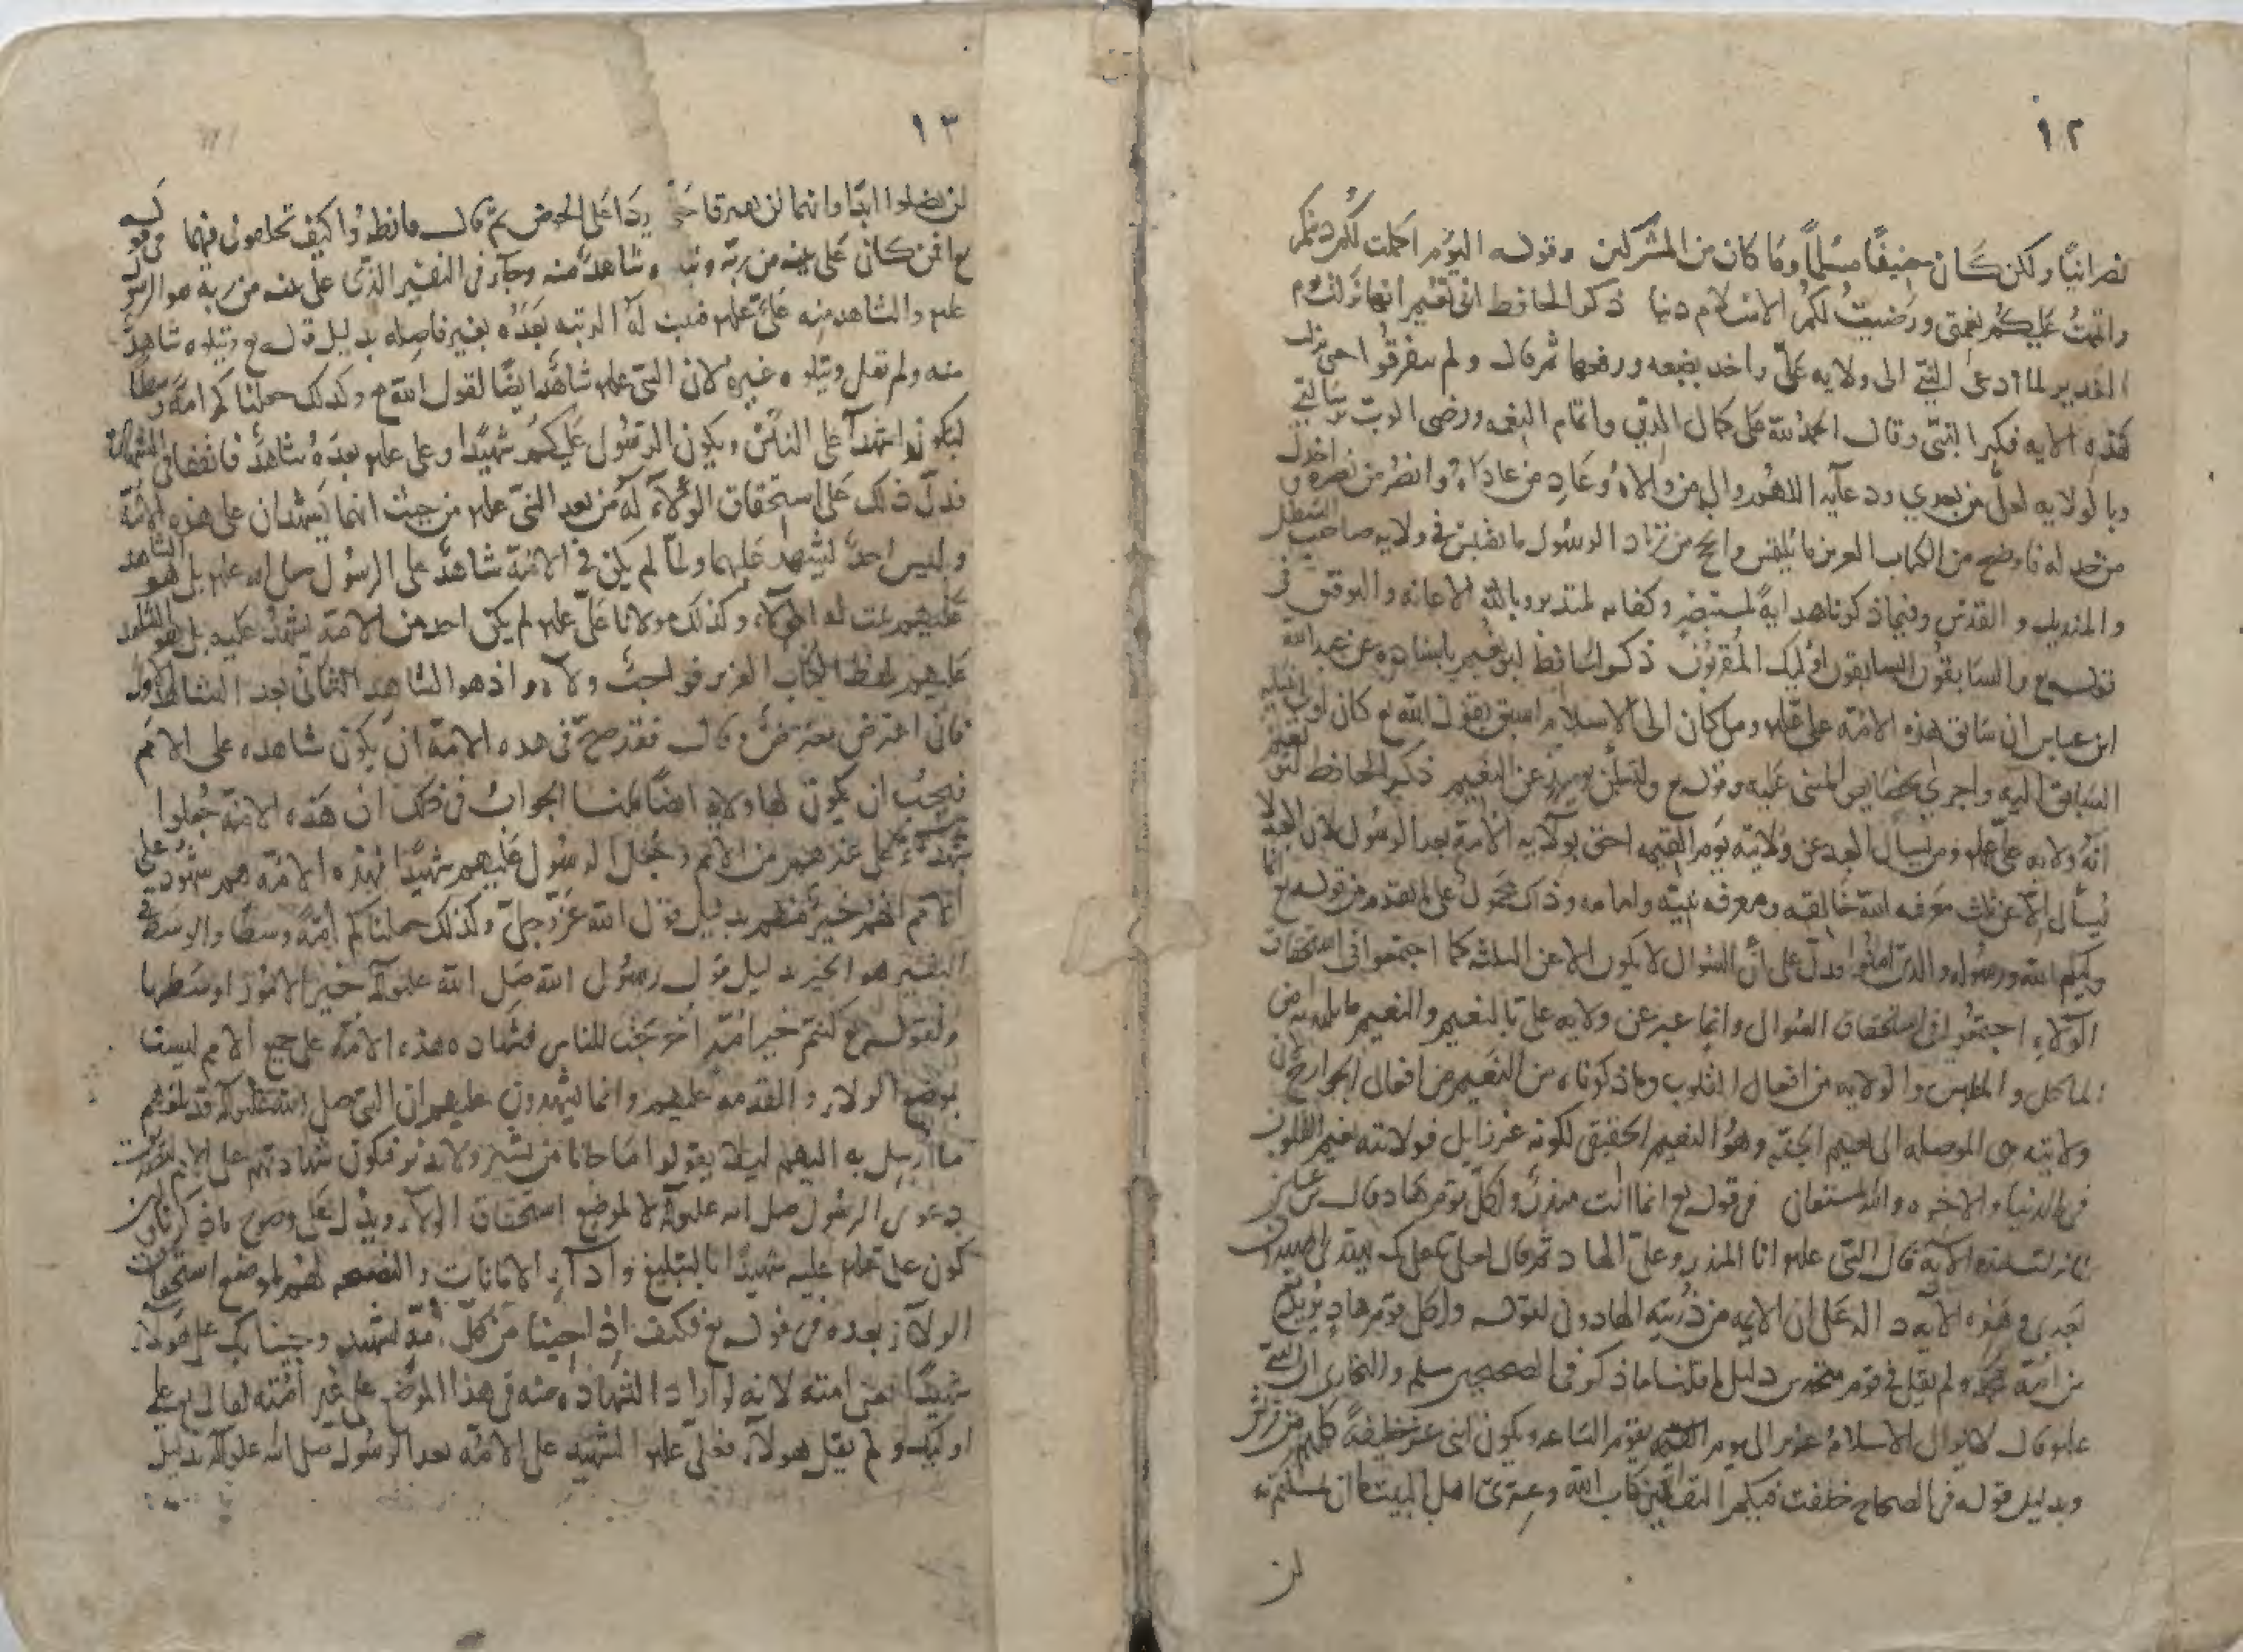 ١٢
نصرانيًا ولكن كان حنيفًا مسلمًا وما كان من المشركين وقوله اليوم اكملت لكم دينكم
واتممت عليكم نعمتي ورضيت لكم الاسلام دينا ذكر الحافظ ابي نعيم انها نزلت يوم
الغدير لما ادعى النبي الى ولايه علي واخد بضبعه ورفعها ثم قال ولم يتفرقوا حتى نزلت
هذه الايه فكبر النبي وقال الحمد لله على كمال الدين واتمام النعمه ورضى الرب برسالتي
وبالولايه لعلي من بعدي ودعايه اللهم وال من والاه وعاد من عاداه وانصر من نصره واخذل
من خدله فاوضح من الكتاب العزيز ما الرسول في ولايه صاحب السطل
والمنديل و القدس وفيما ذكرناه هدايةً لمستبصر وكفايه لمتدبر وبالله الاعانه والتوفيق في
قوله ع والسابقون السابقون اوليك المقربون ذكر الحافظ ابو نعيم باسناده عن عبد الله
ابن عباس ان سابق هذه الامة علي علم ومن كان الى الاسلام اسبق بقول الله ع كان اولى
السابق اليه وقوله ع ولتسألن يومئذ عن النعيم ذكر الحافظ ابو نعيم
انه ولايه علي علم ومن يسأل العبد عن ولايته يوم القيمه احق بولايه الامة بعد الرسول لان العبد لا
يسأل الا عن ثلث معرفه الله خالقه ومعرفه نبيه وامامه وذاك محمول على ما تقدم من قوله ع انما
وليكم الله ورسوله والذين امنوا فدل على أن السوال لا يكون الا عن الثلثه كما اجتمعوا في استحقاق
الولاء اجتمعوا في استحقاق السوال وانما عبر عن ولايه علي ع بالنعيم والنعيم ما يلتذ به من
الماكل و الملبس والولايه من افعال القلوب وما ذكرناه من النعيم من افعال الجوارح لان
ولايته هي الموصله الى نعيم الجنة وهو النعيم الحقيقي لكونه غير زايل فولايته نعيم القلوب
في الدنيا والاخره والله المستعان في قوله ع انما انت منذر ولكل قوم هاد قال ابن عباس
لما نزلت هذه الايه قال النبي علم انا المنذر وعلي الهاد ثم قال لعلي ع بك يهتدي المهتدون
بعدي وهذه الاية دالة على ان الايمه من ذريته الهادون لقوله ولكل قوم هاد يريد
من امة محمد ولم يقل في قوم دليل ما قلنا ما ذكر في الصحيحين مسلم والبخاري ان النبي
علم قال لا يزال الاسلام عزيز الى يوم القيمه يقوم الساعه ويكون اثني عشر خليفةً كلهم من قريش
وبدليل قوله في الصحاح خلفت فيكم الثقلين كتاب الله وعترتي اهل البيت ما ان تمسكتم به
لن
١٣
لن تضلوا ابدًا وانهما لن يفترقا حتى يردا على الحوض ثم قال فانظروا كيف تخلفوني فيهما في قوله
ع افمن كان على بينه من ربه ويتلوه شاهد منه وجاء في التفسير الذي على بينه من ربه هو الرسول
علم والشاهد منه علي علم فثبت له الرتبه بعده بغير فاصله بدليل قوله ع ويتلوه شاهد
منه ولم يقل ويتلوه غيره لان النبي علم شاهدا ايضًا لقول الله ع وكذلك جعلناكم امة وسطًا
لتكونوا شهدآ على الناس ويكون الرسول عليكم شهيدا وعلي علم بعده شاهد فاتفقا في الشهادة
فدل ذلك على استحقاق الولاء له من بعد النبي علم من حيث انهما يشهدان على هذه الامة
وليس احد ليشهد عليهما ولما لم يكن في الامة شاهد على الرسول صلى الله علم بل هو الشاهد
عليهم ثبت له الولاء وكذلك مولانا علي علم لم يكن احد من الامة يشهد عليه بل هو الشاهد
عليهم بلفظ الكتاب العزيز فواجب ولآه اذ هو الشاهد الثاني بعد الشاهد الاول
فان اعترض معترض وقال فقد صح في هده الامة ان يكون شاهده على الامم
فيجب ان يكون لها ولاية ايضًا قلنا الجواب في ذلك ان هذه الامة جعلوا
شهدآء على غيرهم من الامم وجعل الرسول عليهم شهيدًا فهذه الامة هم شهود على
الامم انهم خير منهم بدليل قول الله عز وجل وكذلك جعلناكم امةً وسطًا والوسط في
التفسير هو الخير بدليل قول رسول الله صلى الله علو اله خير الامور اوسطها
ولقوله ع كنتم خير امة اخرجت للناس فشهاده هذه الامة على جميع الامم ليست
لموضع الولاء والتقدمه عليهم وانما يشهدون عليهم ان النبي صلى الله علو اله قد بلغهم
ما ارسل به اليهم ليلا يقولوا ما جانا من بشير ولا نذير فتكون شهادتهم على الامم
بدعوى الرسول صلى الله علو اله لا لموضع استحقاق الولاء ويدل على وضوح ماذكرناه من
كون علي علم عليه شهيدًا بالتبليغ وادآء الامانات والنصيحه لهم لموضع استحقاق
الولاء بعده في قوله ع فكيف اذا جينا من كل امة بشهيد وجينا بك على هولاء
شهيدًا يعني امته لانه لو اراد الشهاده منه في هذا الموضع على غير امته لقال ع على
اوليك ولم يقل هولآء فعلي علم الشهيد على الامة بعد الرسول صلى الله علو اله بدليل